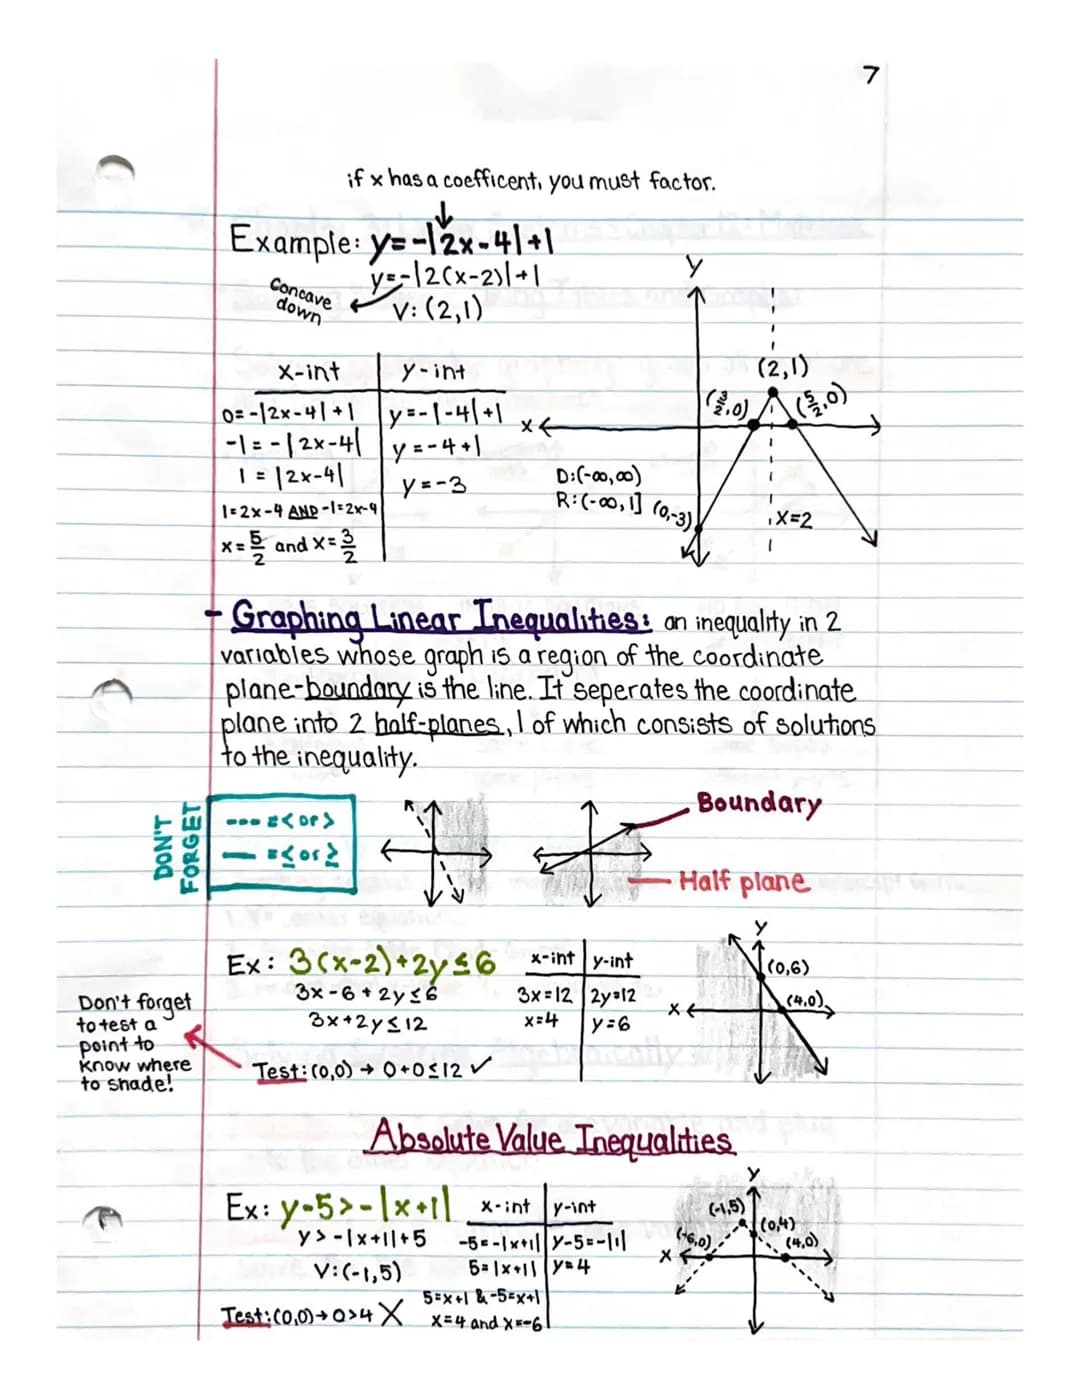 7
if x has a coefficent, you must factor.
Example: y=-|2x-4|+1
y=-|2(x-2)|+1
Concave
down
V: (2,1)
x-int y-int
0=-|2x-4|+1 y=-|-4|+1
-1=-|2x-4| y=-4+1
1=|2x-4| y=-3
1=2x-4 AND -1=2x-4
x=5/2 and x=3/2
y
(2,1)
(3/2,0) (5/2,0)
x
D:(-∞,∞)
R:(-∞,1] (0,-3)
x=2
- Graphing Linear Inequalities: an inequality in 2
variables whose graph is a region of the coordinate
plane-boundary is the line. It seperates the coordinate
plane into 2 half-planes, 1 of which consists of solutions
to the inequality.
DON'T
FORGET
--- =< or >
— =≤ or ≥
Boundary
Half plane
Ex: 3(x-2)+2y≤6
3x-6+2y≤6
3x+2y≤12
x-int y-int
3x=12 2y=12
x=4 y=6
Test:(0,0) → 0+0≤12 ✓
Don't forget
to test a
point to
know where
to shade!
y
(0,6)
(4,0)
x
Absolute Value Inequalities
Ex: y-5>-|x+1|
y>-|x+1|+5
V:(-1,5)
Test:(0,0)→0>4 X
x-int y-int
-5=-|x+1| y-5=-|1|
5=|x+1| y=4
5=x+1 & -5=x+1
x=4 and x=-6
y
(-1,5)
(0,4)
(-6,0) (4,0)
x